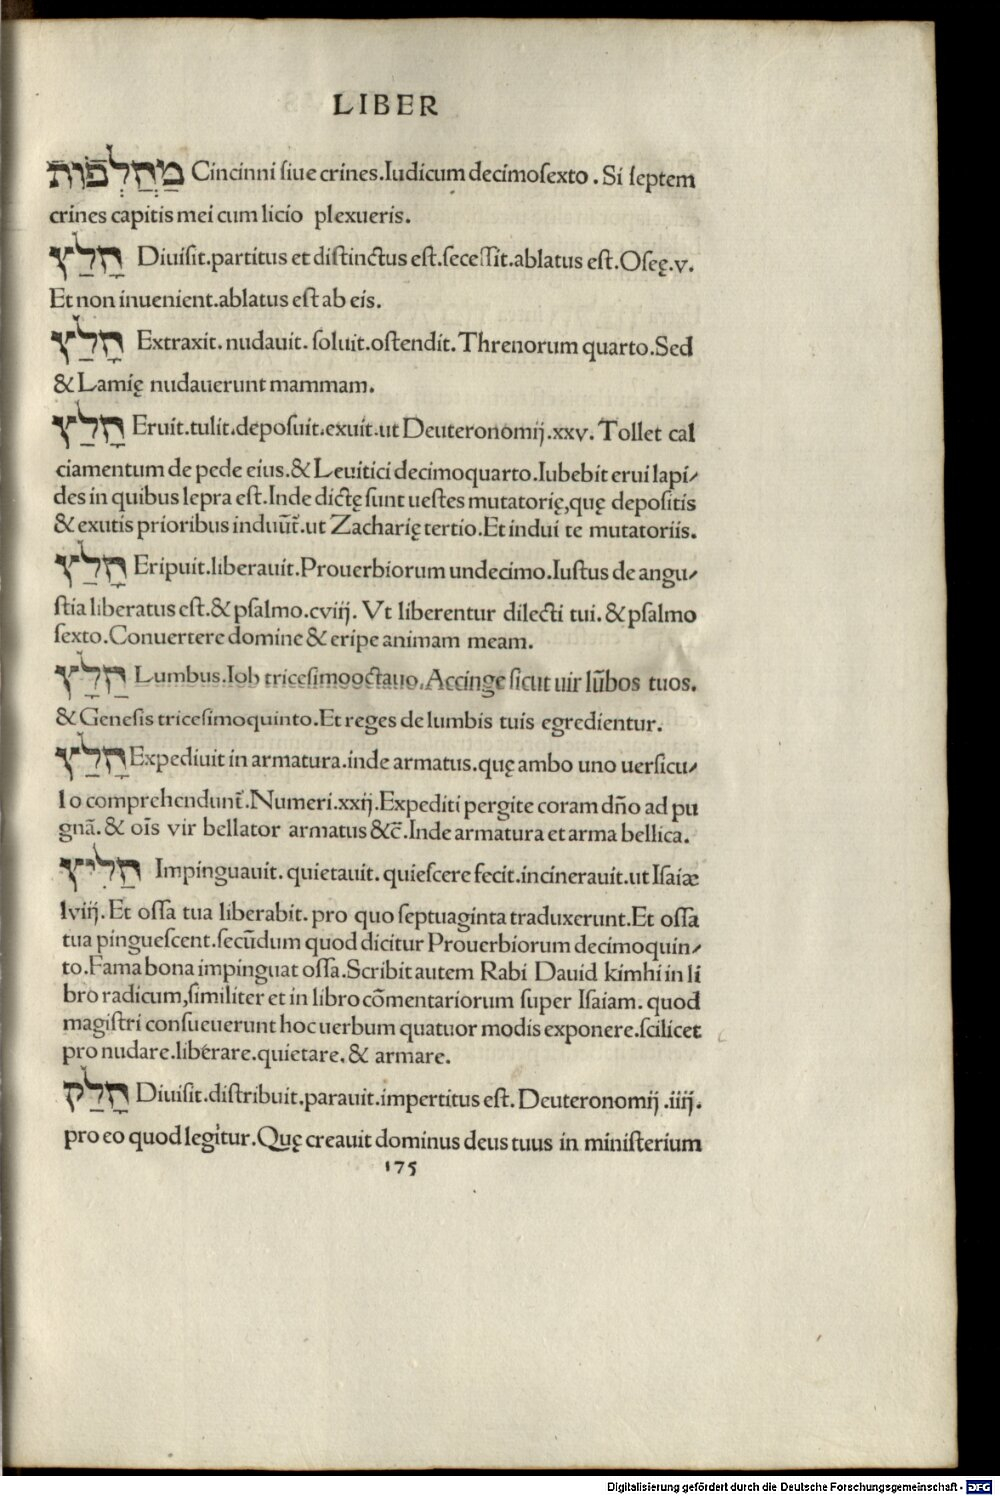 LIBER
מַחְלְפוֹת Cincinni ſiue crines.Iudicum decimoſexto . Si ſeptem
crines capitis mei cum licio plexueris.
חָלַץ Diuiſit.partitus et diſtinctus eſt.ſeceſſit.ablatus eſt.Oſeę.v.
Et non inuenient.ablatus eſt ab eis.
חָלַץ Extraxit.nudauit.ſoluit.oſtendit.Threnorum quarto.Sed
& Lamię nudauerunt mammam.
חָלַץ Eruit.tulit.depoſuit.exuit.ut Deuteronomij.xxv.Tollet cal
ciamentum de pede eius.& Leuitici decimoquarto.Iubebit erui lapi⸗
des in quibus lepra eſt.Inde dictę ſunt ueſtes mutatorię,quę depoſitis
& exutis prioribus induūt̄.ut Zacharię tertio.Et indui te mutatoriis.
חָלַץ Eripuit.liberauit.Prouerbiorum undecimo.Iuſtus de angu⸗
ſtia liberatus eſt.& pſalmo.cviij. Vt liberentur dilecti tui.& pſalmo
ſexto.Conuertere domine & eripe animam meam.
חָלָץ Lumbus.Iob triceſimooctauo.Accinge ſicut uir lūbos tuos.
& Geneſis triceſimoquinto.Et reges de lumbis tuis egredientur.
חָלַץ Expediuit in armatura.inde armatus.quę ambo uno uerſicu⸗
lo comprehendunt̄.Numeri.xxij.Expediti pergite coram dño ad pu
gnā.& oīs vir bellator armatus &c̄.Inde armatura et arma bellica.
חַלִיץ Impinguauit.quietauit.quieſcere fecit.incinerauit.ut Iſaiæ
lviij.Et oſſa tua liberabit.pro quo ſeptuaginta traduxerunt.Et oſſa
tua pingueſcent.ſecūdum quod dicitur Prouerbiorum decimoquin⸗
to.Fama bona impinguat oſſa.Scribit autem Rabi Dauid kimhi in li
bro radicum,ſimiliter et in libro cōmentariorum ſuper Iſaiam.quod
magiſtri conſueuerunt hoc uerbum quatuor modis exponere.ſcilicet
pro nudare.liberare.quietare.& armare.
חָלַק Diuiſit.diſtribuit.parauit.impertitus eſt.Deuteronomij.iiij.
pro eo quod legitur.Quę creauit dominus deus tuus in miniſterium
175
Digitalisierung gefördert durch die Deutsche Forschungsgemeinschaft - DFG